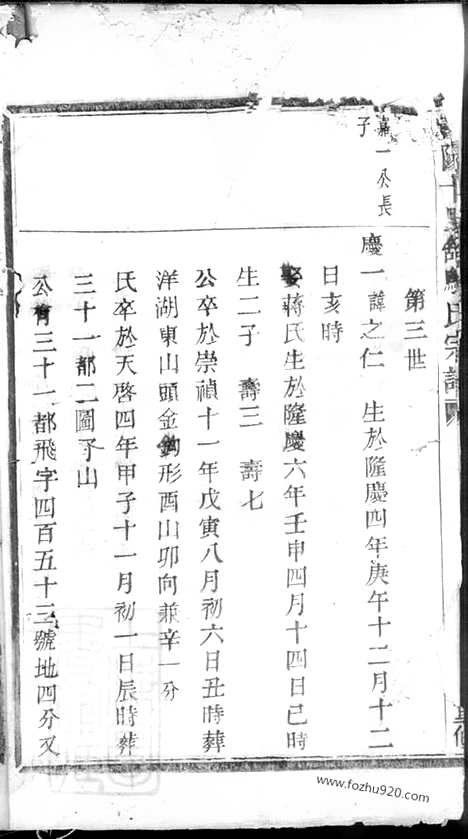 十里鋪駱氏宗譜
嘉一公長子
第三世
慶一諱之仁 生於隆慶四年庚午十二月十二
日亥時
娶蔣氏生於隆慶六年壬申四月十四日巳時
生二子 壽三 壽七
公卒於崇禎十一年戊寅八月初六日丑時葬
洋湖東山頭金鈎形酉山卯向兼辛一分
氏卒於天啓四年甲子十一月初一日辰時葬
三十一都二圖下山
公有三十一都飛字四百五十三號地四分又
www.fozhu920.com